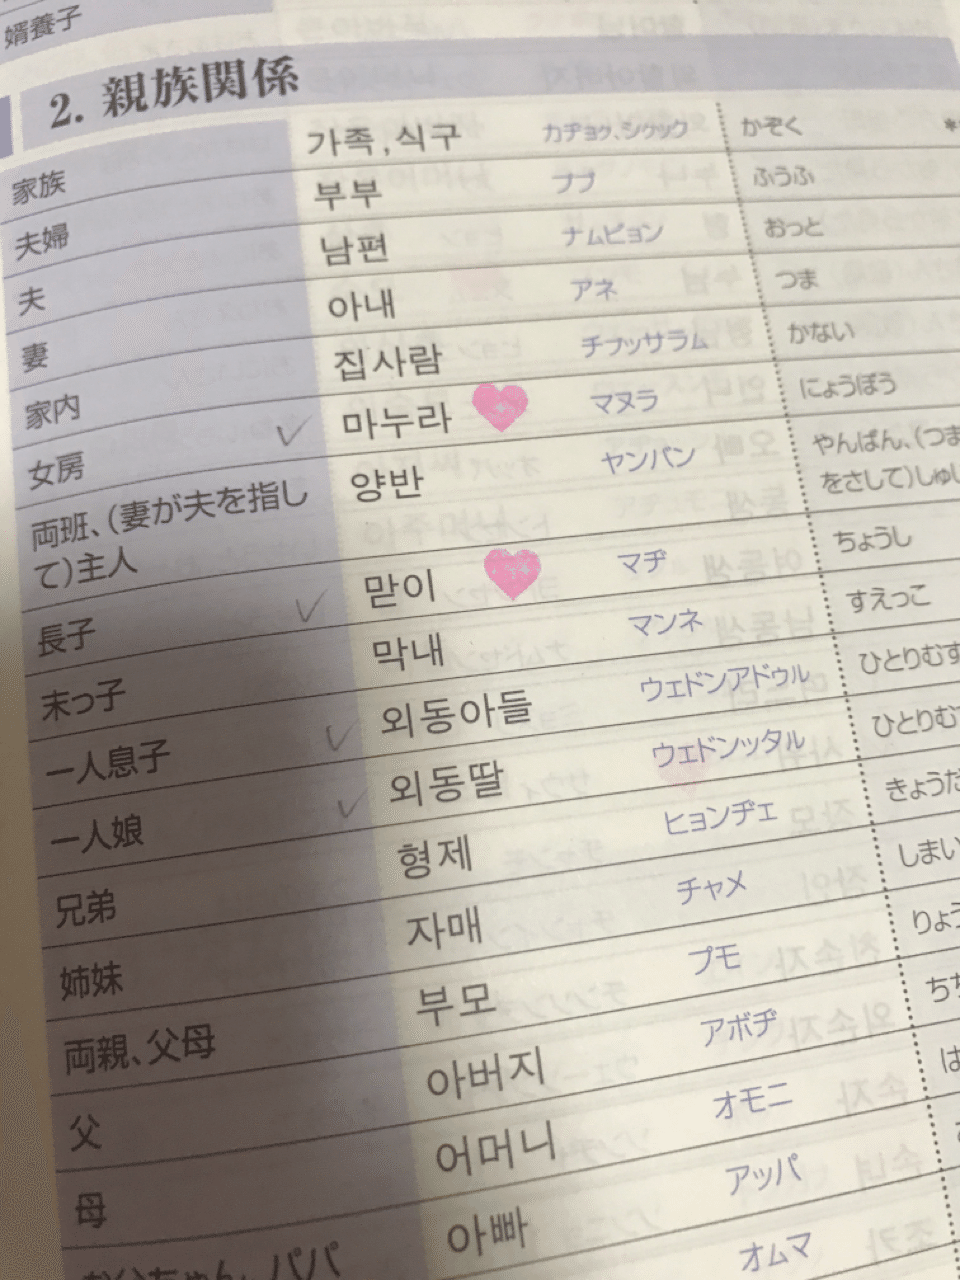 婿養子
2. 親族関係
家族 가족, 식구 カヂョク、シクック かぞく *
夫婦 부부 ププ ふうふ
夫 남편 ナムピョン おっと
妻 아내 アネ つま
家内 집사람 チプッサラム かない
女房 마누라 マヌラ にょうぼう
両班、(妻が夫を指し 양반 ヤンバン やんばん、(つま
て)主人 をさして)しゅ
長子 맏이 マヂ ちょうし
末っ子 막내 マンネ すえっこ
一人息子 외동아들 ウェドンアドゥル ひとりむす
一人娘 외동딸 ウェドンッタル ひとりむ
兄弟 형제 ヒョンヂェ きょうだ
姉妹 자매 チャメ しまい
両親、父母 부모 プモ りょう
父 아버지 アボヂ ちち
母 어머니 オモニ は
パパ 아빠 アッパ
オムマ